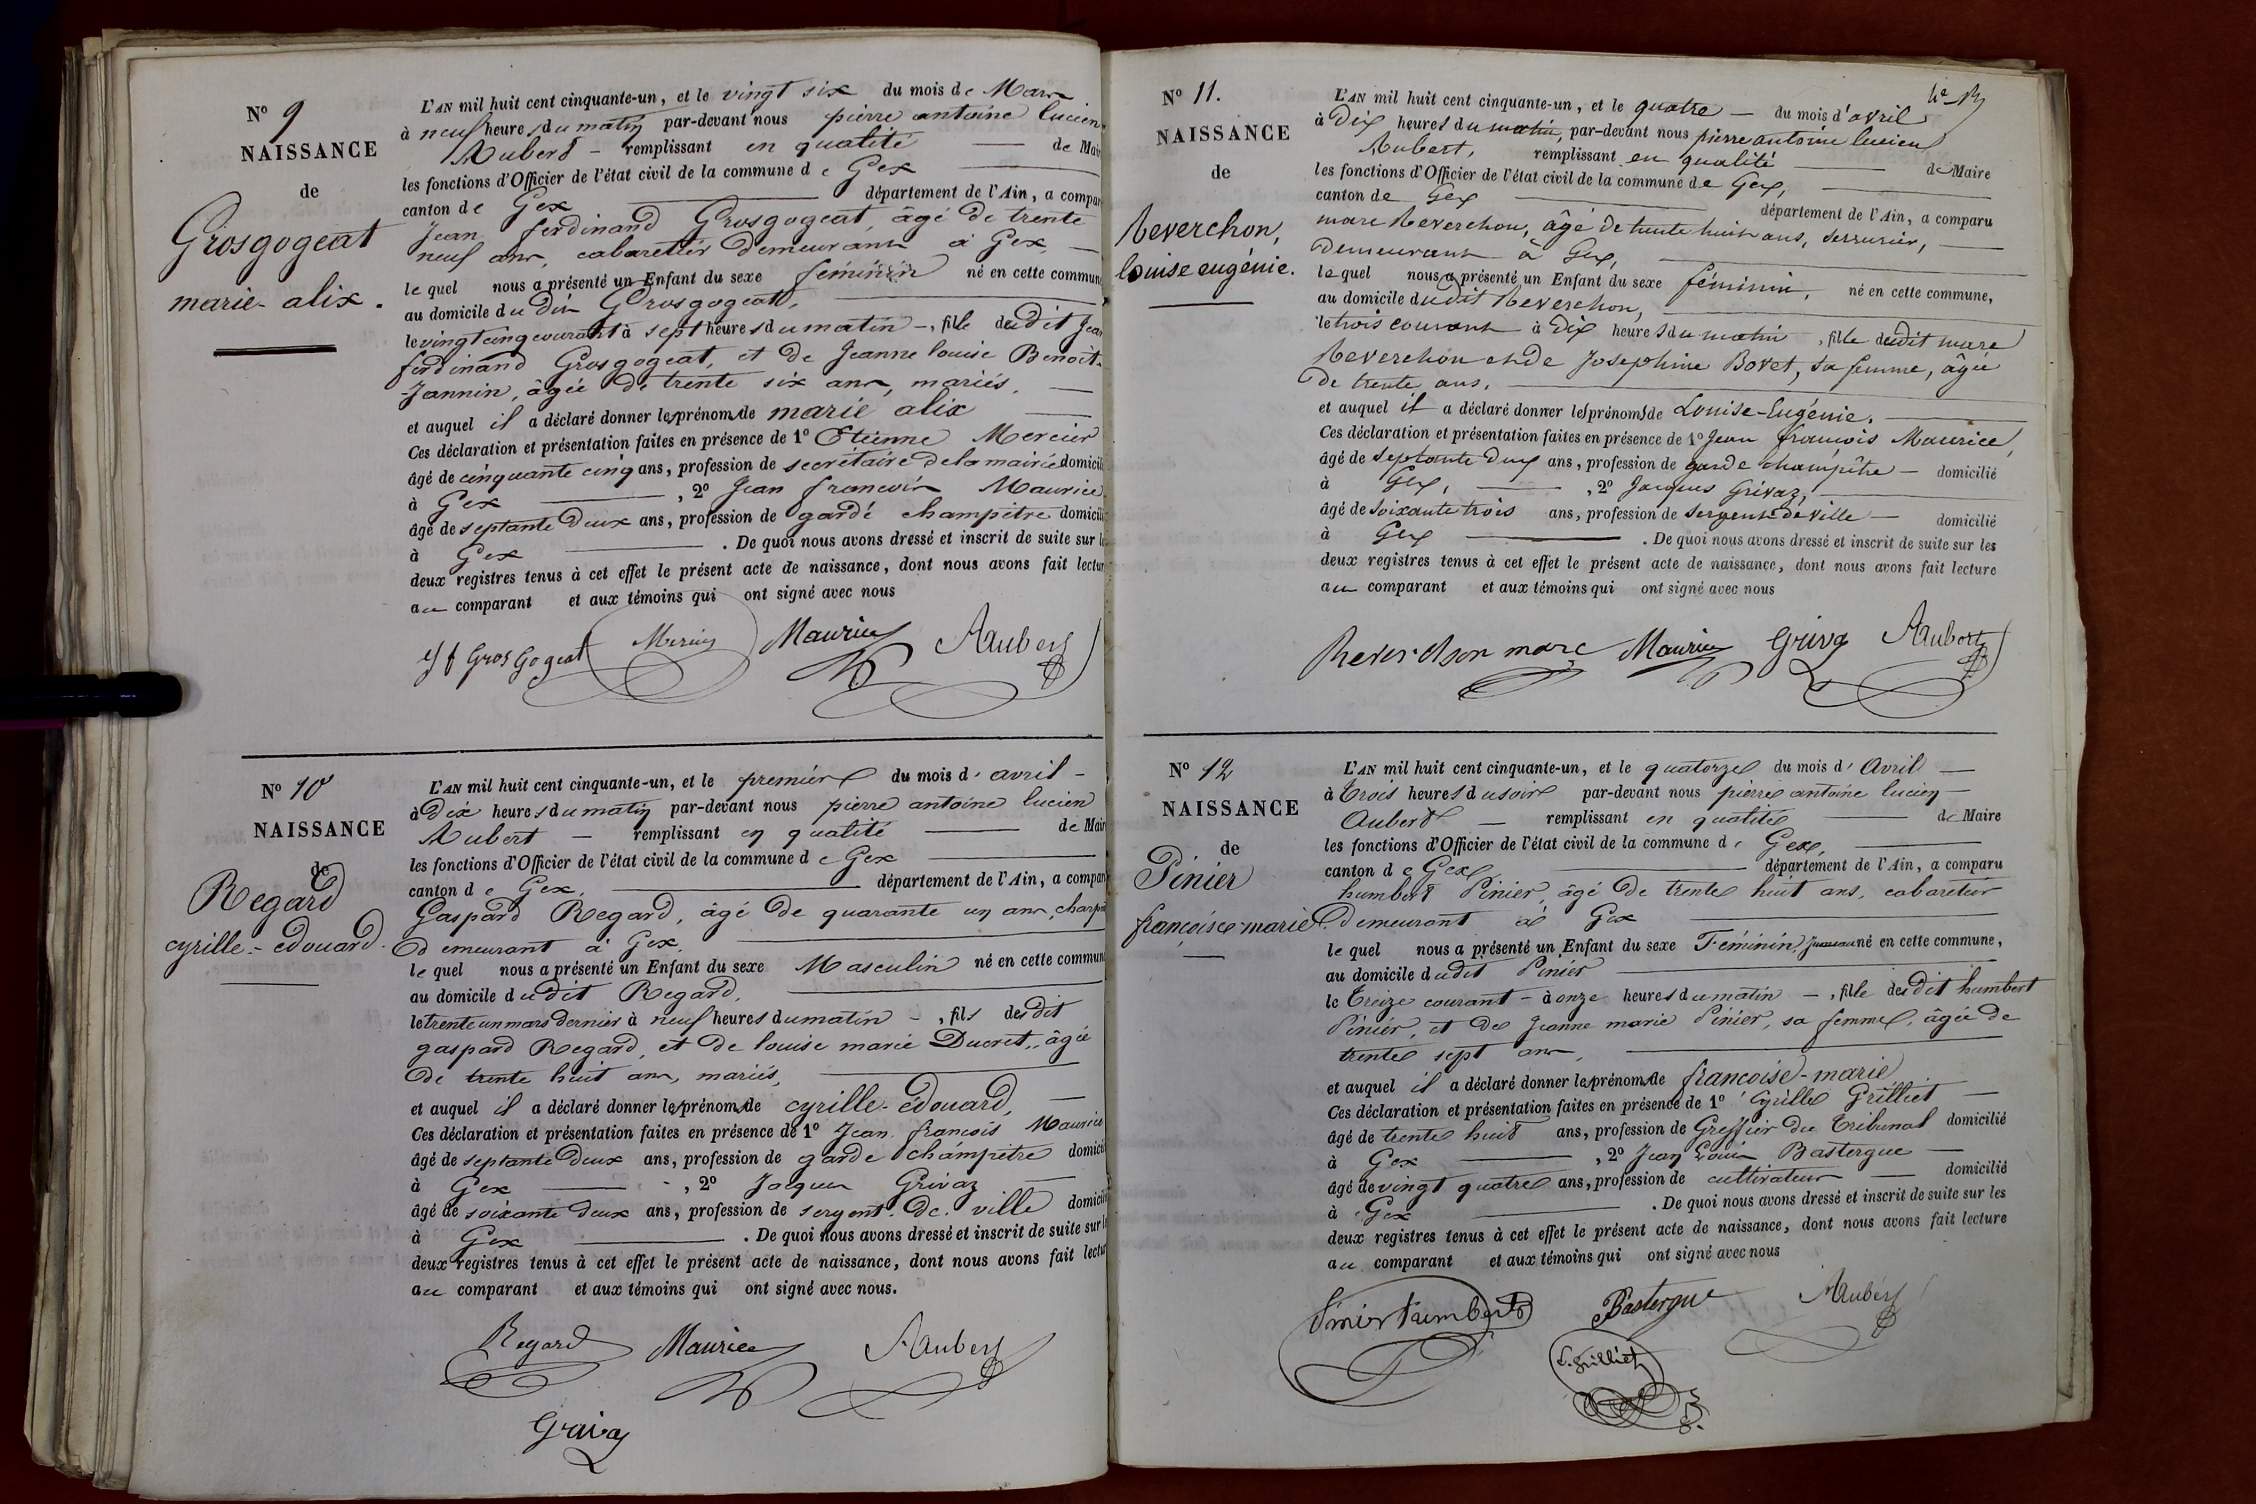 N° 9
NAISSANCE
de
Grosgogeat
marie-alix.
L'AN mil huit cent cinquante-un, et le vingt six du mois de Mars
à neuf heures du matin par-devant nous pierre antoine lucien
Aubert – remplissant en qualité — de Mair
les fonctions d'Officier de l'état civil de la commune de Gex
canton de Gex — département de l'Ain, a compar
Jean ferdinand Grosgogeat, âgé de trente
neuf ans, cabaretier demeurant à Gex —
lequel nous a présenté un Enfant du sexe féminin né en cette commune
au domicile du dit Grosgogeat,
le vingt cinq courant à sept heures du matin –, fille dudit Jean
ferdinand Grosgogeat, et de Jeanne louise Benoit-
Jannin, âgée de trente six ans, mariés,
et auquel il a déclaré donner les prénoms de marie alix
Ces déclaration et présentation faites en présence de 1° Etienne Mercier
âgé de cinquante cinq ans, profession de secrétaire de la mairie domicili
à Gex — , 2° Jean francois Maurice
âgé de septante deux ans, profession de garde champêtre domicili
à Gex — . De quoi nous avons dressé et inscrit de suite sur le
deux registres tenus à cet effet le présent acte de naissance, dont nous avons fait lectur
au comparant et aux témoins qui ont signé avec nous
Jf Gros Gogeat Mercier Maurice AAubert
N° 10
NAISSANCE
de
Regard
cyrille-edouard.
L'AN mil huit cent cinquante-un, et le premier du mois d'avril –
à Dix heures du matin par-devant nous pierre antoine lucien
Aubert — remplissant en qualité — de Mair
les fonctions d'Officier de l'état civil de la commune de Gex
canton de Gex, — département de l'Ain, a compar
Gaspard Regard, âgé de quarante un ans, charp
demeurant à Gex.
lequel nous a présenté un Enfant du sexe Masculin né en cette commun
au domicile dudit Regard,
le trente un mars dernier à neuf heures du matin –, fils dudit
gaspard Regard, et de louise marie Ducret, âgée
de trente huit ans, mariés,
et auquel il a déclaré donner les prénoms de cyrille-édouard,
Ces déclaration et présentation faites en présence de 1° Jean francois Maurice
âgé de septante deux ans, profession de garde champêtre domicili
à Gex — , 2° Jacques Grivaz
âgé de soixante deux ans, profession de sergent de ville domicili
à Gex — . De quoi nous avons dressé et inscrit de suite sur l
deux registres tenus à cet effet le présent acte de naissance, dont nous avons fait lectur
au comparant et aux témoins qui ont signé avec nous.
Regard Maurice AAubert
Grivaz
N° 11.
NAISSANCE
de
Reverchon,
louise eugénie.
L'AN mil huit cent cinquante-un, et le quatre — du mois d'avril
à Dix heures du matin, par-devant nous pierre antoine lucien
Aubert, remplissant en qualité — de Maire
les fonctions d'Officier de l'état civil de la commune de Gex,
canton de Gex — département de l'Ain, a comparu
marc Reverchon, âgé de trente huit ans, serrurier,
demeurant à Gex,
lequel nous a présenté un Enfant du sexe féminin, né en cette commune,
au domicile dudit Reverchon,
le trois courant à Dix heures du matin, fille dudit marc
Reverchon et de Josephine Bovet, sa femme, âgée
de trente ans.
et auquel il a déclaré donner les prénoms de Louise-Eugénie.
Ces déclaration et présentation faites en présence de 1° Jean françois Maurice,
âgé de septante deux ans, profession de garde champêtre — domicilié
à Gex, — , 2° Jacques Grivaz,
âgé de soixante trois ans, profession de sergent de ville — domicilié
à Gex — . De quoi nous avons dressé et inscrit de suite sur les
deux registres tenus à cet effet le présent acte de naissance, dont nous avons fait lecture
au comparant et aux témoins qui ont signé avec nous
Reverchon marc Maurice Grivaz AAubert
N° 12
NAISSANCE
de
Pinier
françoise-marie
L'AN mil huit cent cinquante-un, et le quatorze du mois d'Avril —
à Trois heures du soir par-devant nous pierre antoine lucien —
Aubert — remplissant en qualité — de Maire
les fonctions d'Officier de l'état civil de la commune de Gex,
canton de Gex — département de l'Ain, a comparu
humbert Pinier, âgé de trente huit ans, cabaretier
demeurant à Gex
lequel nous a présenté un Enfant du sexe Féminin, né en cette commune,
au domicile dudit Pinier
le Treize courant – à onze heures du matin —, fille dudit humbert
Pinier, et de Jeanne marie Pinier, sa femme, âgée de
trente sept ans,
et auquel il a déclaré donner les prénoms de francoise-marie
Ces déclaration et présentation faites en présence de 1° Cyrille Grilliet —
âgé de trente huit ans, profession de Greffier du Tribunal domicilié
à Gex — , 2° Jean Louis Bastergue —
âgé de vingt quatre ans, profession de cultivateur — domicilié
à Gex — . De quoi nous avons dressé et inscrit de suite sur les
deux registres tenus à cet effet le présent acte de naissance, dont nous avons fait lecture
au comparant et aux témoins qui ont signé avec nous
Pinier humbert Bastergue AAubert
C. Grilliet